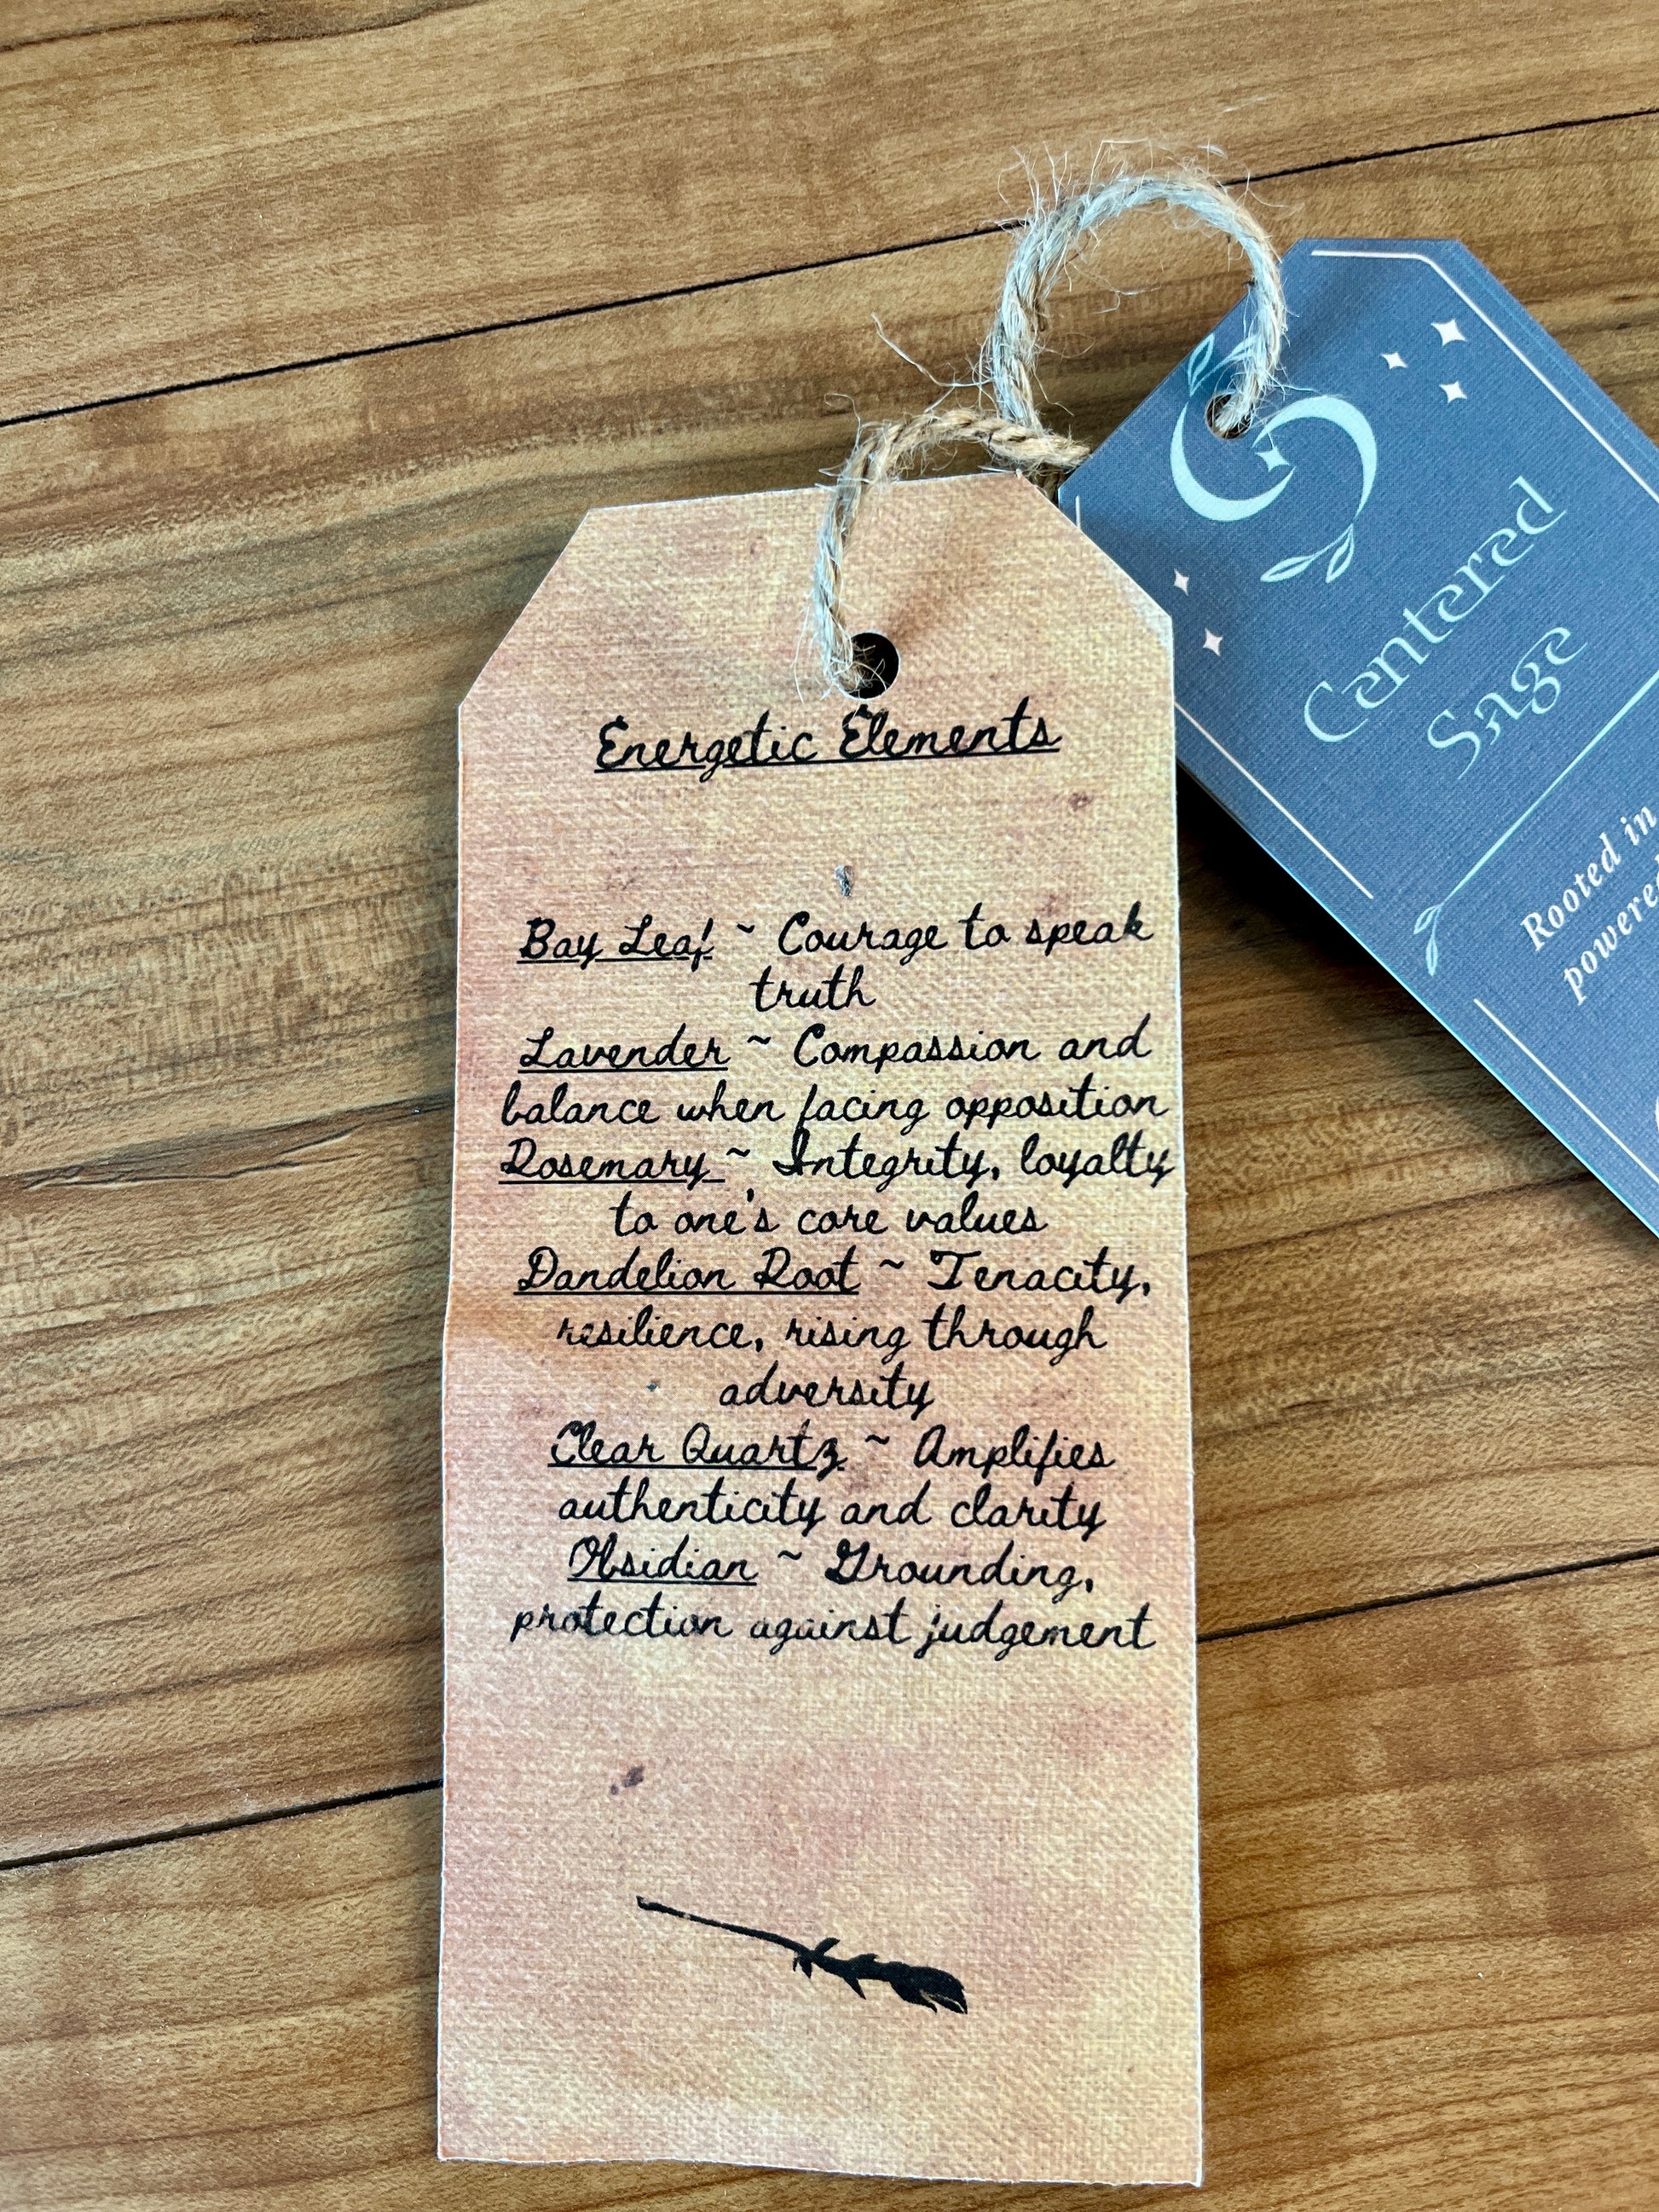 Energetic Elements
Bay Leaf ~ Courage to speak
truth
Lavender ~ Compassion and
balance when facing opposition
Rosemary ~ Integrity, loyalty
to one's core values
Dandelion Root ~ Tenacity,
resilience, rising through
adversity
Clear Quartz ~ Amplifies
authenticity and clarity
Obsidian ~ Grounding,
protection against judgement
Centered
Sage
Rooted in
powered